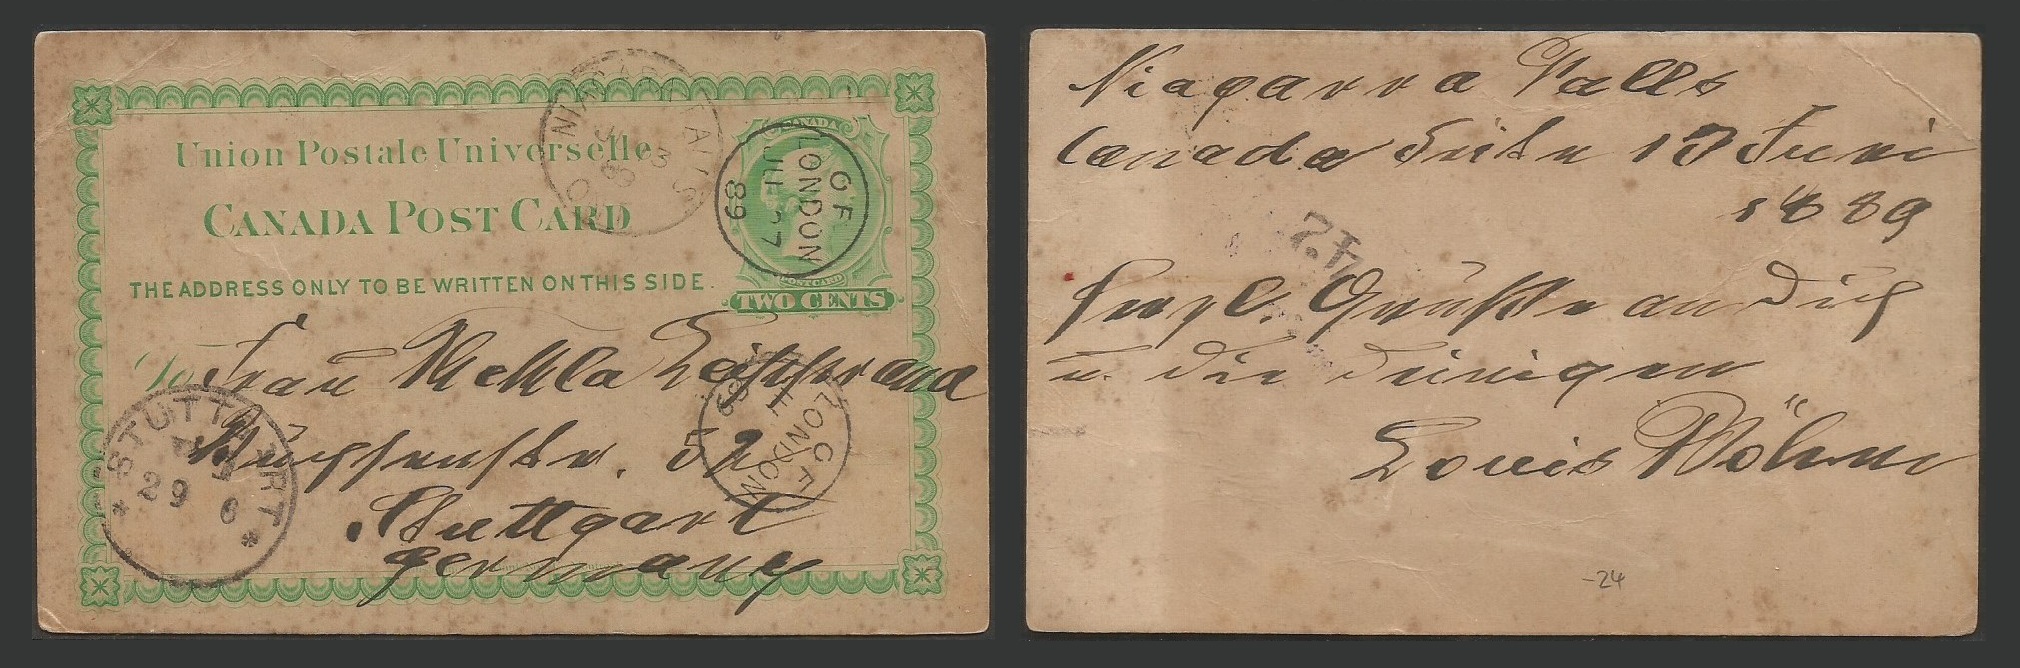 Union Postale Universelle
CANADA POST CARD
THE ADDRESS ONLY TO BE WRITTEN ON THIS SIDE.
CANADA
POST CARD
TWO CENTS
NIAGARA FALLS
LONDON
89
LONDON
STUTTGART
29 6
To Frau
52
Stuttgart
Germany
Niagarra Falls
Canada Seite 13 Juni
1889
Grüße an Dich
u. die Deinigen
Louis Böhm
-24